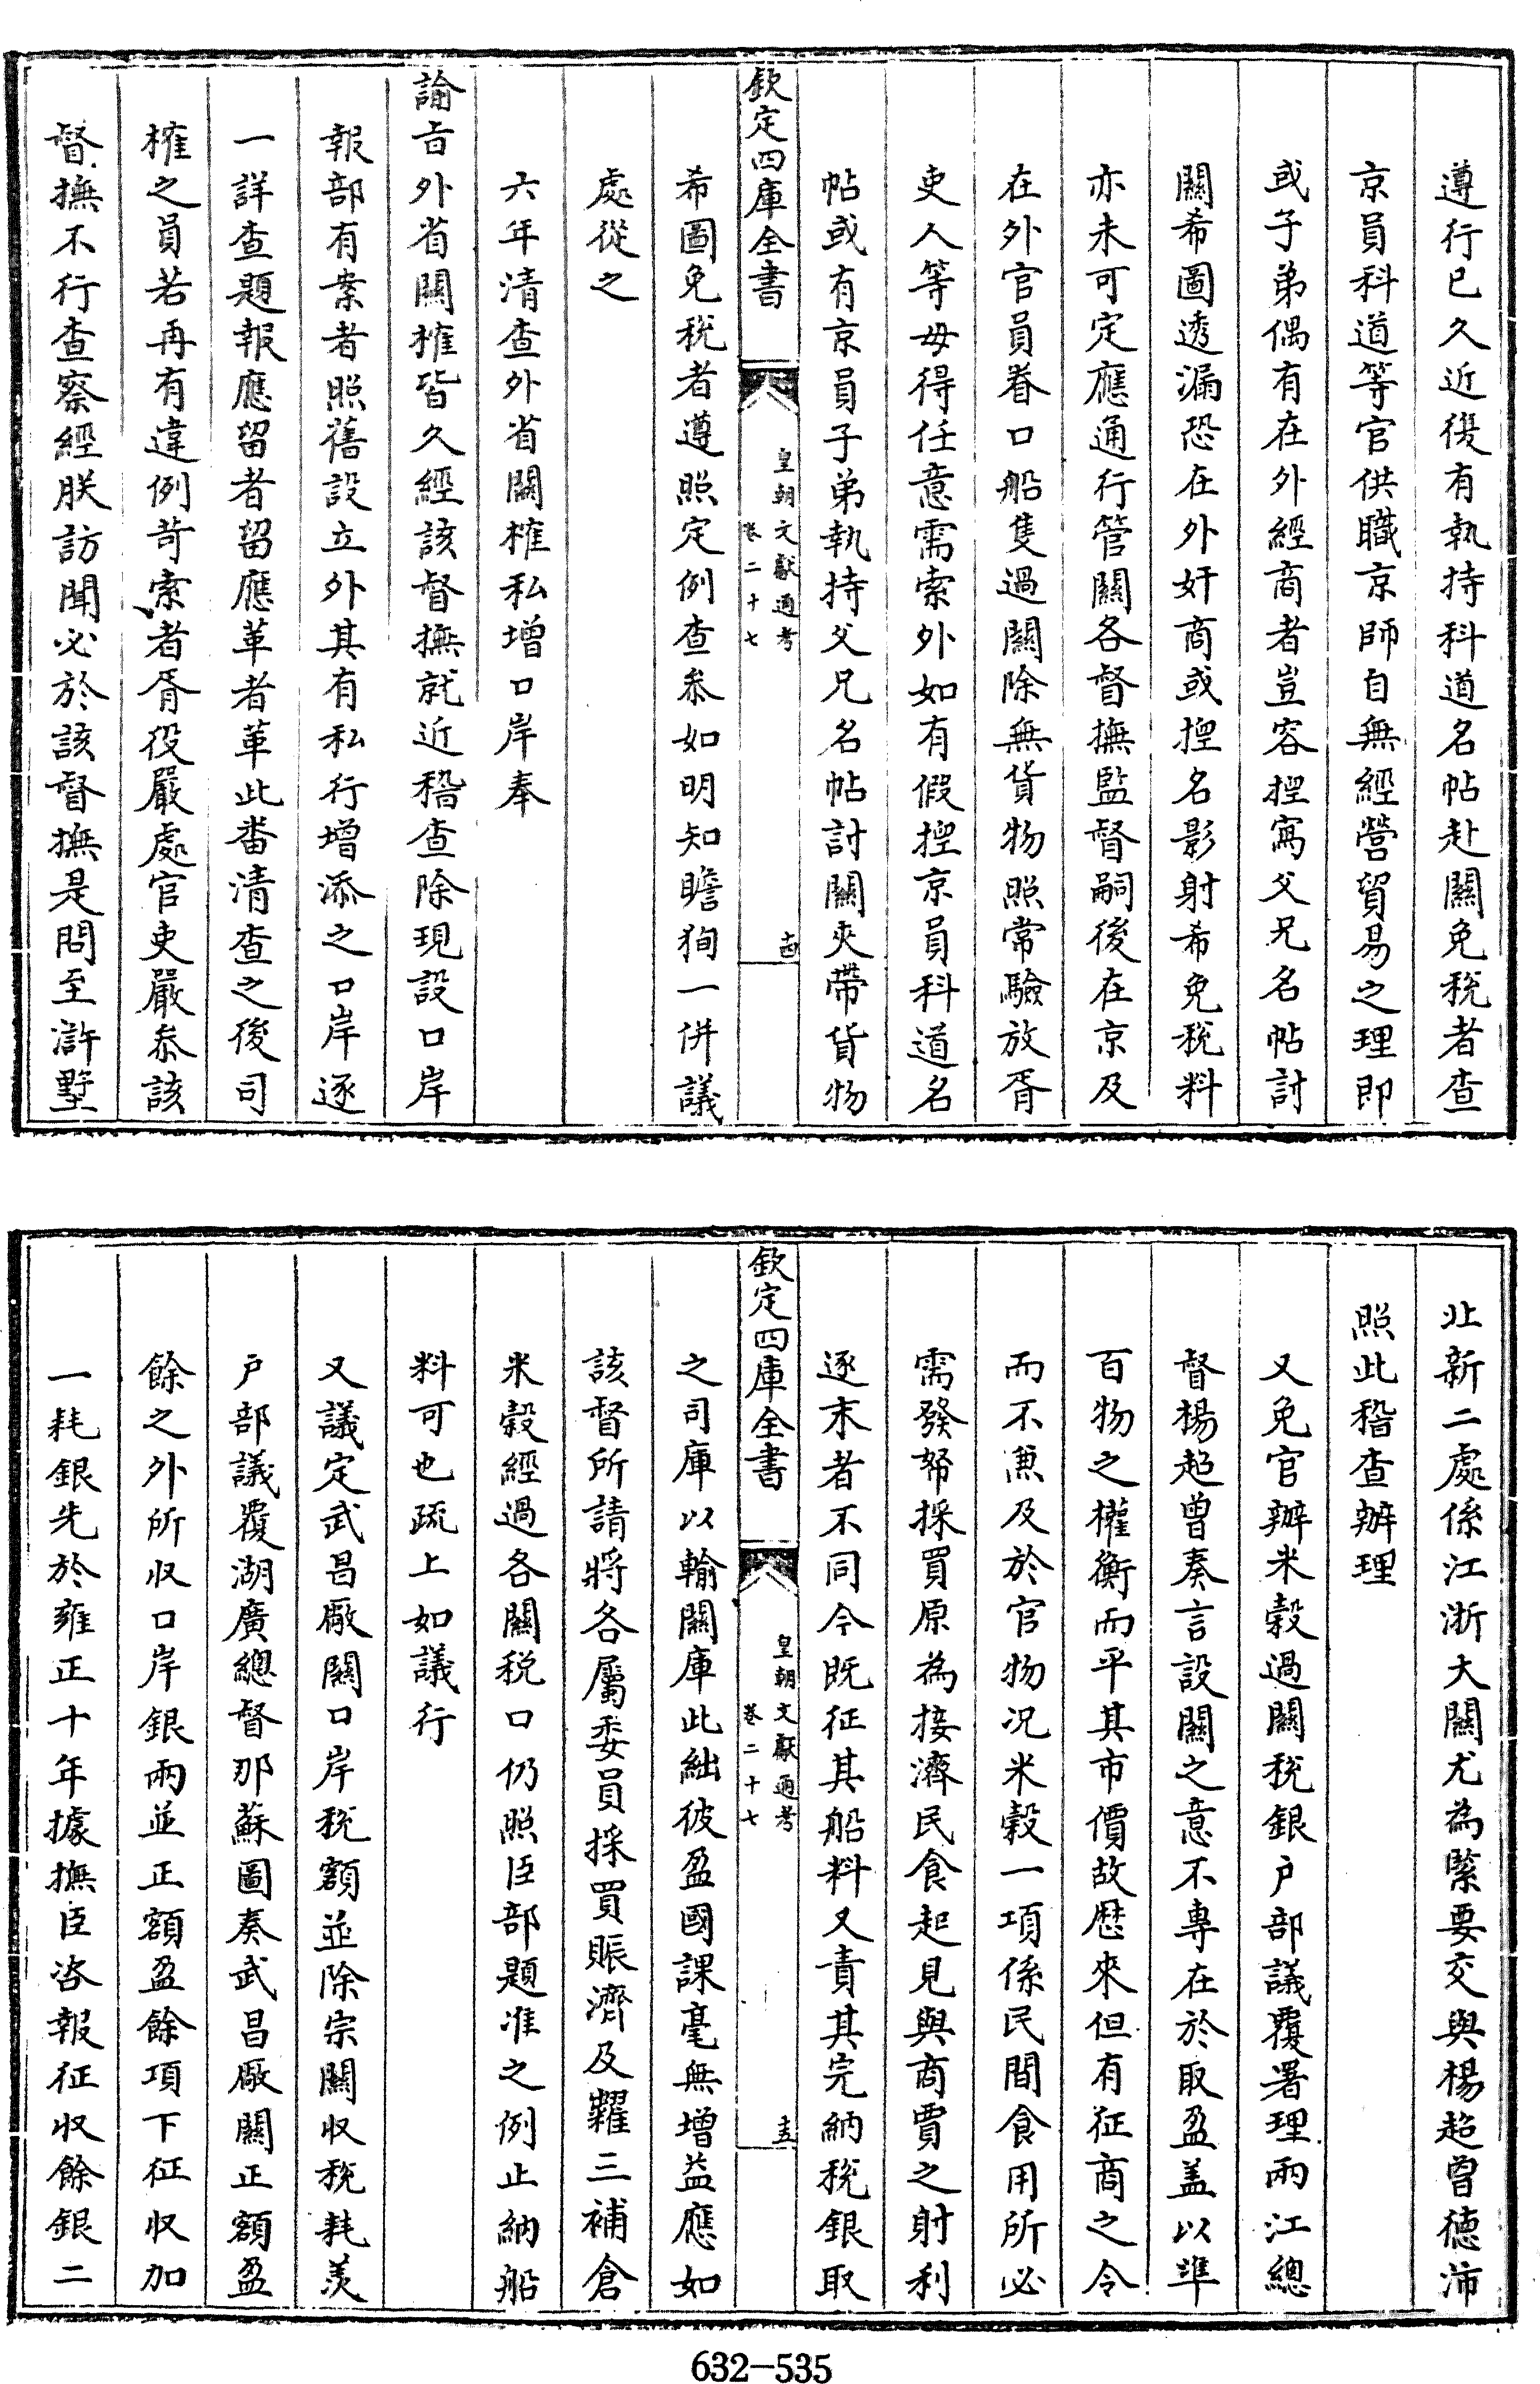 遵行已久近復有執持科道名帖赴關免稅者查
京員科道等官供職京師自無經營貿易之理即
或子弟偶有在外經商者豈容揑寫父兄名帖討
關希圖透漏恐在外奸商或揑名影射希免稅料
亦未可定應通行管關各督撫監督嗣後在京及
在外官員眷口船隻過關除無貨物照常驗放胥
吏人等毋得任意需索外如有假揑京員科道名
帖或有京員子弟執持父兄名帖討關夾帶貨物
欽定四庫全書
皇朝文獻通考
卷二十七
十四
希圖免稅者遵照定例查叅如明知瞻狥一併議
處從之
六年清查外省關榷私增口岸奉
諭旨外省關榷皆久經該督撫就近稽查除現設口岸
報部有案者照舊設立外其有私行增添之口岸逐
一詳查題報應留者留應革者革此番清查之後司
榷之員若再有違例苛索者胥役嚴處官吏嚴叅該
督撫不行查察經朕訪聞必於該督撫是問至滸墅
北新二處係江浙大關尤為緊要交與楊超曾德沛
照此稽查辦理
又免官辦米穀過關稅銀户部議覆署理兩江總
督楊超曾奏言設關之意不專在於取盈盖以準
百物之權衡而平其市價故歷來但有征商之令
而不兼及於官物况米穀一項係民間食用所必
需發帑採買原為接濟民食起見與商賈之射利
逐末者不同今既征其船料又責其完納稅銀取
欽定四庫全書
皇朝文獻通考
卷二十七
十五
之司庫以輸關庫此絀彼盈國課毫無增益應如
該督所請將各屬委員採買賑濟及糴三補倉
米穀經過各關稅口仍照臣部題准之例止納船
料可也疏上如議行
又議定武昌廠關口岸稅額並除宗關収稅耗羡
户部議覆湖廣總督那蘇圖奏武昌廠關正額盈
餘之外所収口岸銀兩並正額盈餘項下征収加
一耗銀先於雍正十年據撫臣咨報征収餘銀二
632-535